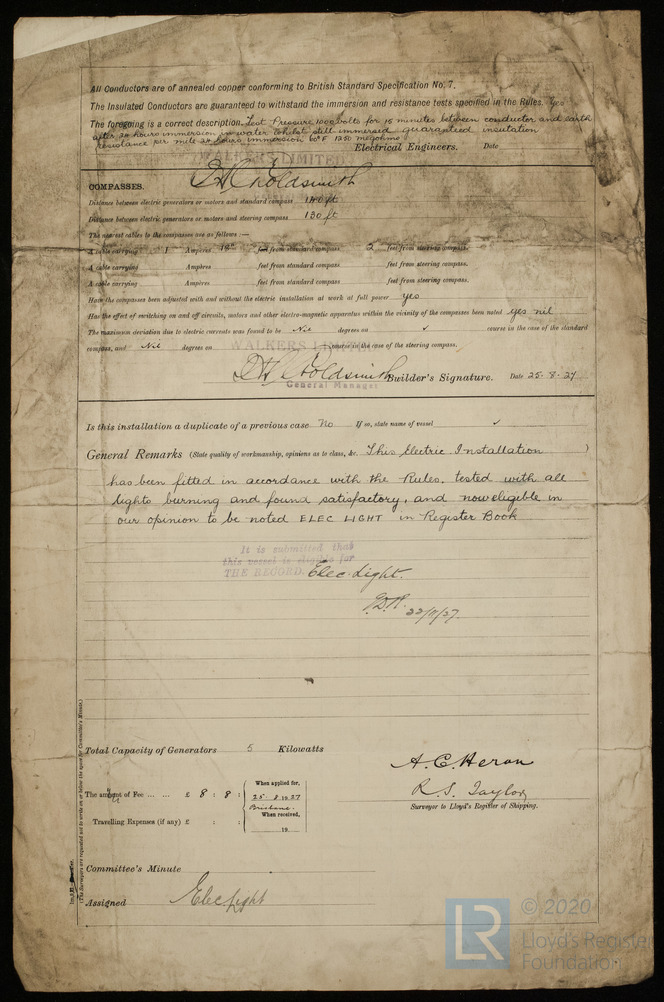 All Conductors are of annealed copper conforming to British Standard Specification No. 7.
The Insulated Conductors are guaranteed to withstand the immersion and resistance tests specified in the Rules. Yes
The foregoing is a correct description. Test Pressure 1000 volts for 15 minutes between conductor and earth
after 24 hours immersion in water whilst still immersed guaranteed insulation
resistance per mile 24 hours immersion 60°F 1250 megohms
Electrical Engineers. Date
WALKERS LIMITED
Goldsmith
COMPASSES.
Distance between electric generators or motors and standard compass 140 ft
Distance between electric generators or motors and steering compass 130 ft
The nearest cables to the compasses are as follows:—
A cable carrying 1 Amperes feet from standard compass 2 feet from steering compass.
A cable carrying Amperes feet from standard compass feet from steering compass.
A cable carrying Amperes feet from standard compass feet from steering compass.
Have the compasses been adjusted with and without the electric installation at work at full power yes
Has the effect of switching on and off circuits, motors and other electro-magnetic apparatus within the vicinity of the compasses been noted yes nil
The maximum deviation due to electric currents was found to be Nil degrees on ✓ course in the case of the standard
compass, and Nil degrees on course in the case of the steering compass.
WALKERS LIMITED
Goldsmith Builder's Signature. Date 25.8.27
General Manager
Is this installation a duplicate of a previous case No If so, state name of vessel ✓
General Remarks (State quality of workmanship, opinions as to class, &c. This Electric Installation )
has been fitted in accordance with the Rules, tested with all
lights burning and found satisfactory, and now eligible in
our opinion to be noted ELEC LIGHT in Register Book
It is submitted that
this vessel is eligible for
THE RECORD. Elec. Light.
22/11/27.
Total Capacity of Generators 5 Kilowatts
A. C. Heron
R. S. Taylor
Surveyor to Lloyd's Register of Shipping.
The amount of Fee ... ... £ 8 : 8 :
When applied for,
25.8.1927
Brisbane.
Travelling Expenses (if any) £ : :
When received,
19
(The Surveyors are requested not to write on or below the space for Committee's Minute.)
Committee's Minute
Assigned Elec Light
LR
© 2020
Lloyd's Register
Foundation